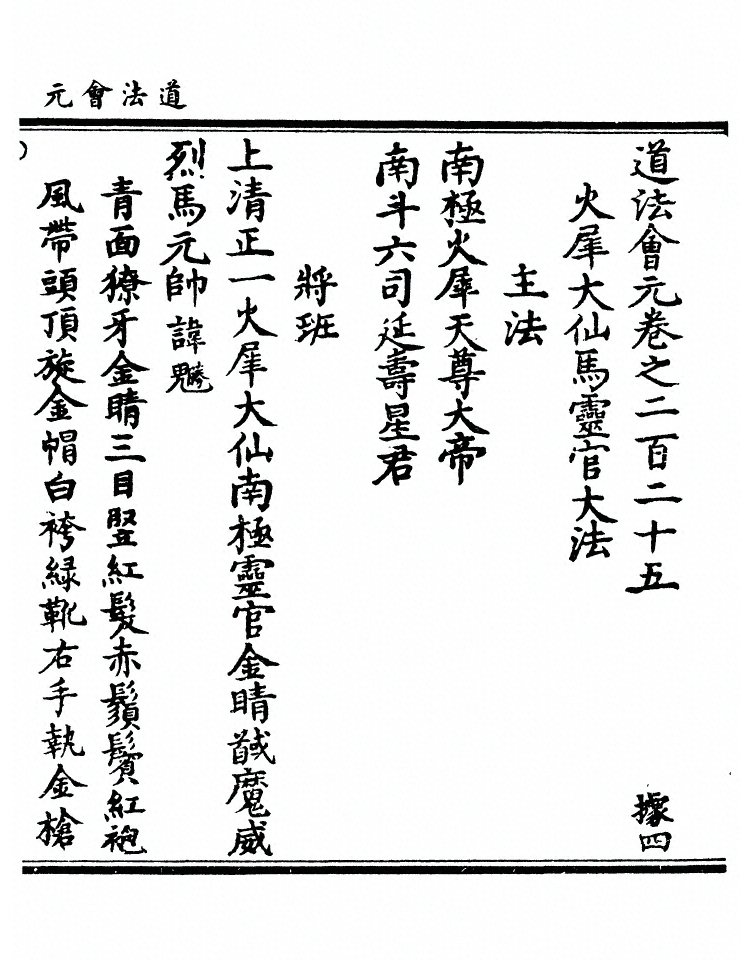 道法會元
道法會元卷之二百二十五
據四
火犀大仙馬靈官大法
主法
南極火犀天尊大帝
南斗六司延壽星君
將班
上清正一火犀大仙南極靈官金睛馘魔威
烈馬元帥諱魒
青面獠牙金睛三目竪紅髮赤鬚鬢紅袍
風帶頭頂旋金帽白袴緑靴右手執金槍